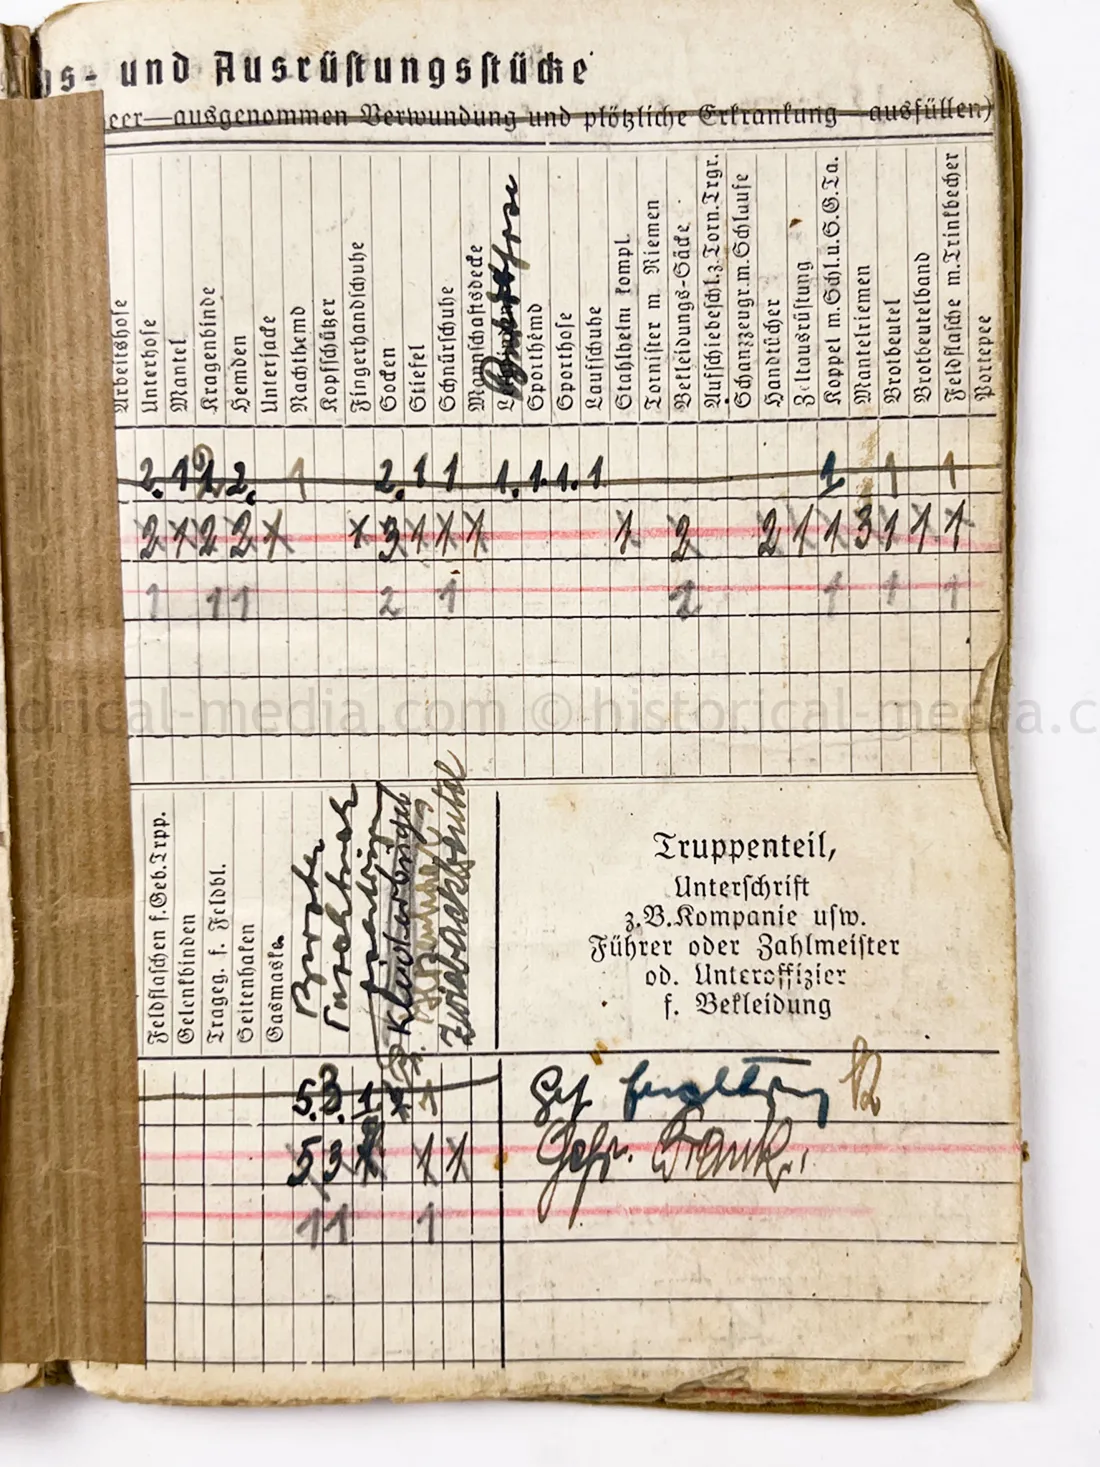 gs- und Ausrüstungsstücke
eer—ausgenommen Verwundung und plötzliche Erkrankung—ausfüllen)
Arbeitshose
Unterhose
Mantel
Kragenbinde
Hemden
Unterjacke
Nachthemd
Kopfschützer
Fingerhandschuhe
Socken
Stiefel
Schnürschuhe
Mannschaftsdecke
Sporthemd
Sporthose
Laufschuhe
Stahlhelm kompl.
Tornister m. Riemen
Bekleidungs-Säcke
Aufschiebeschl.z.Torn.Trgr.
Schanzzeugr.m.Schlaufe
Handtücher
Zeltausrüstung
Koppel m.Schl.u.S.G.Ta.
Mantelriemen
Brotbeutel
Brotbeutelband
Feldflasche m.Trinkbecher
Portepee
2. 1 2. 1 2. 1 1 1. 1. 1. 1 1 1 1
2 1 2 2 1 1 3 1 1 1 1 2 2 1 1 3 1 1 1
1 1 1 2 1 2 1 1 1
historical-media.com © historical-media.c
Feldflaschen f.Geb.Trpp.
Gelenkbinden
Trageg. f. Feldbl.
Seitenhaken
Gasmaske
Kleiderbügel
Zwiebackbeutel
Truppenteil,
Unterschrift
z.B.Kompanie usw.
Führer oder Zahlmeister
od. Unteroffizier
f. Bekleidung
5. 3. 1
5 3 1 1
Gefr.
1 1 1